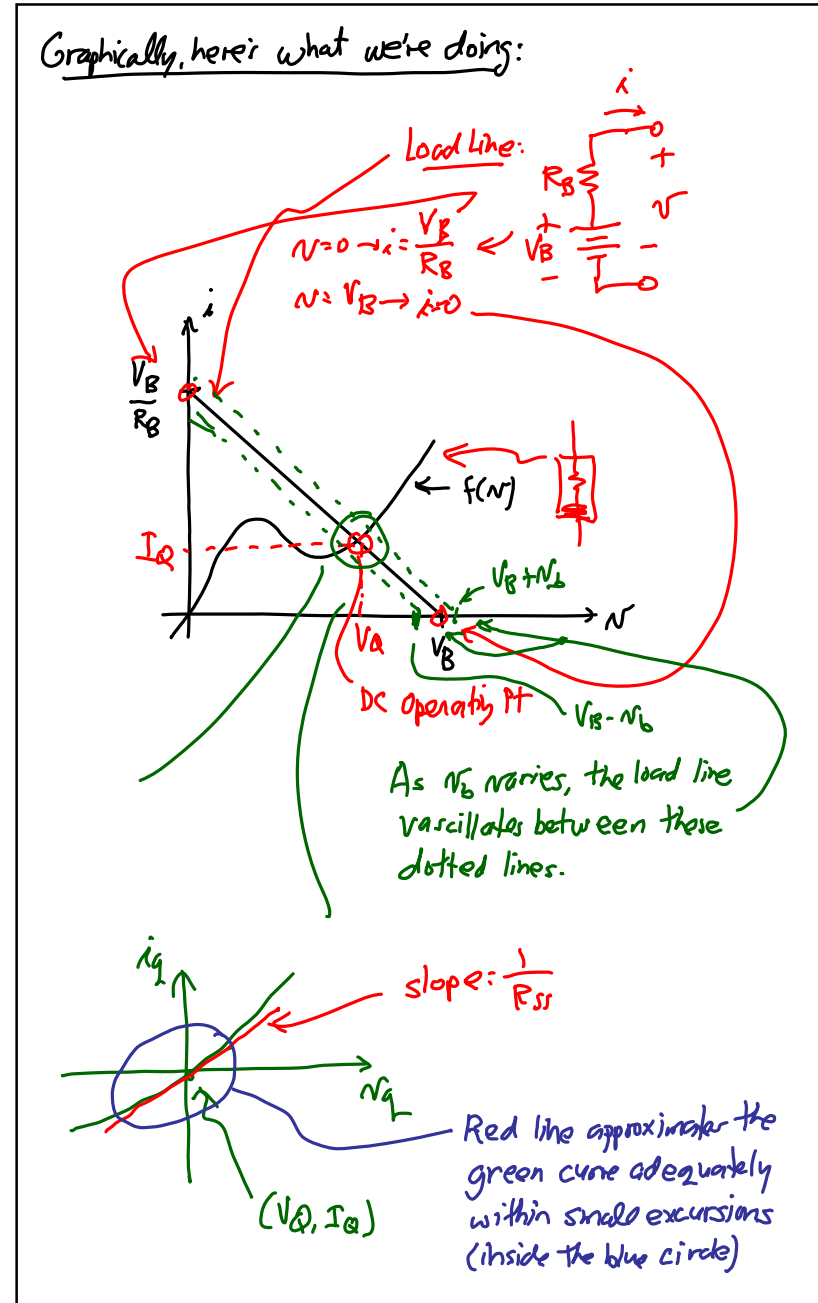 Graphically, here's what we're doing:
i
Load Line:
R_B
+
v
-
+
V_B
-
v=0 → i = V_B/R_B
v = V_B → i=0
i
V_B/R_B
f(v)
I_Q
V_B+v_b
v
V_Q
V_B
DC Operating Pt
V_B-v_b
As v_b varies, the load line
vascillates between these
dotted lines.
i_q
slope: 1/R_ss
v_q
(V_Q, I_Q)
Red line approximates the
green curve adequately
within small excursions
(inside the blue circle)